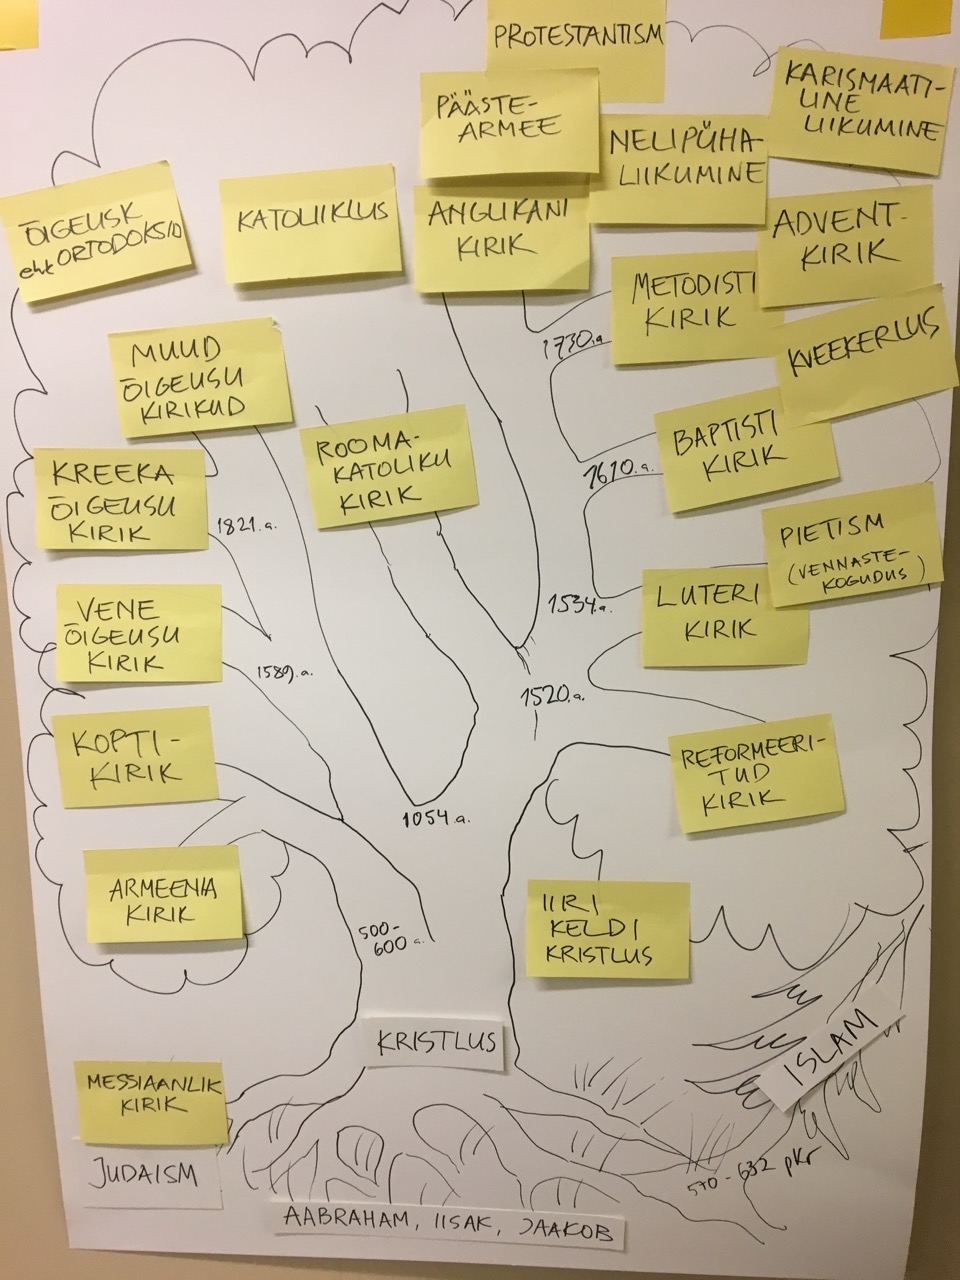 PROTESTANTISM
PÄÄSTE-
ARMEE
NELIPÜHA-
LIIKUMINE
KARISMAATI-
LINE
LIIKUMINE
ÕIGEUSK
ehk ORTODOKSID
KATOLIIKLUS
ANGLIKANI
KIRIK
ADVENT-
KIRIK
METODISTI
KIRIK
1730.a
KVEEKERLUS
MUUD
ÕIGEUSU
KIRIKUD
ROOMA-
KATOLIKU
KIRIK
BAPTISTI
KIRIK
1610.a.
KREEKA
ÕIGEUSU
KIRIK
1821.a.
PIETISM
(VENNASTE-
KOGUDUS)
1534.a.
LUTERI
KIRIK
VENE
ÕIGEUSU
KIRIK
1589.a.
1520.a.
KOPTI-
KIRIK
1054.a.
REFORMEERI-
TUD
KIRIK
ARMEENIA
KIRIK
500-
600 a.
IIRI
KELDI
KRISTLUS
KRISTLUS
ISLAM
570-632 pKr
MESSIAANLIK
KIRIK
JUDAISM
AABRAHAM, IISAK, JAAKOB